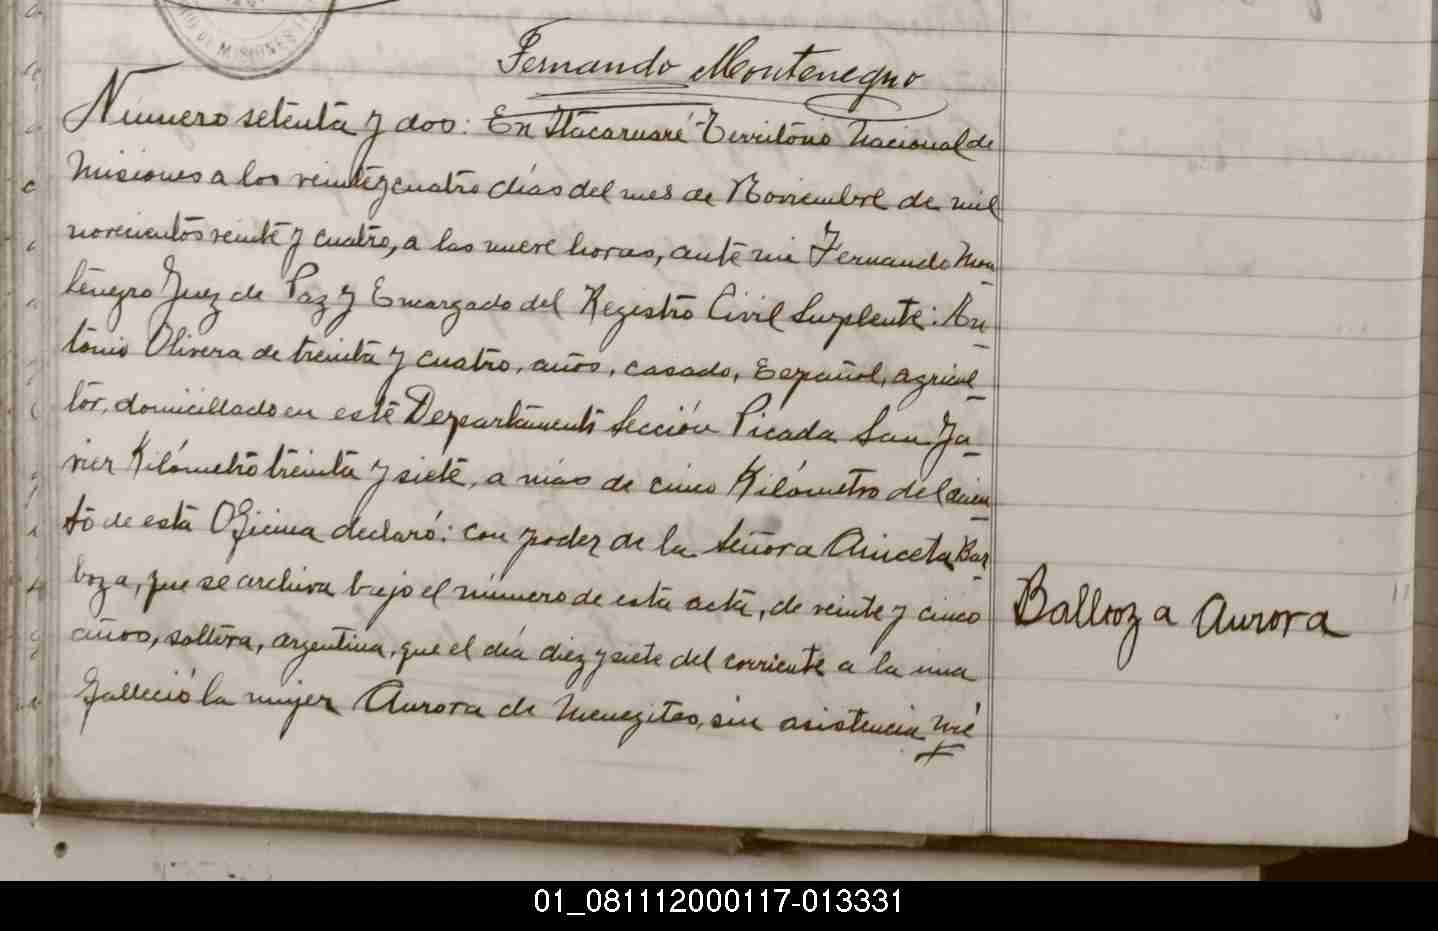 DE MISIONES
Fernando Montenegro
Número setenta y dos: En Itacaruaré Territorio Nacional de
Misiones a los veinte y cuatro días del mes de Noviembre de mil
novecientos veinte y cuatro, a las nueve horas, ante mi Fernando Mon
tenegro Juez de Paz y Encargado del Registro Civil Surplente: An
tonio Olivera de treinta y cuatro, años, casado, Español, agricul
tor, domicillado en este Departamento Sección Picada San Ja
vier Kilómetro treinta y siete, a más de cinco Kilómetro del asien
to de esta Oficina declaró: con poder de la Señora Aniceta Bar
boza, que se archiva bajo el número de esta acta, de veinte y cinco
años, soltera, argentina, que el día diez y siete del corriente a la una
falleció la mujer Aurora de Menezites, sin asistencia mé
Balboza Aurora
01_081112000117-013331